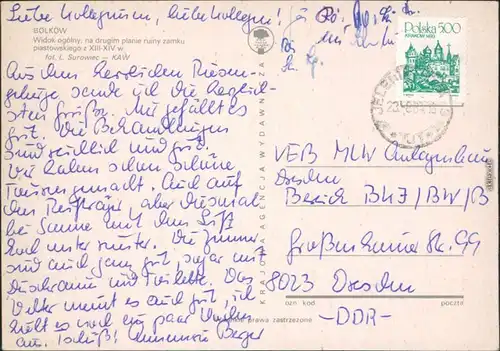 Liebe Kolleginnen, liebe Kollegen!
BOLKÓW
Widok ogólny, na drugim planie ruiny zamku
piastowskiego z XIII-XIV w
fot. L. Surowiec — KAW
Aus dem herrlichen Riesen-
gebirge sende ich die herzlich-
sten Grüße. Mir gefällt es
gut. Die Behandlungen
sind reichlich und gut.
Wir haben schon schöne
Touren gemacht. Auch auf
den Reifträger, aber diesmal
bei Sonne mit dem Lift
hoch unter runter. Die Zimmer
sind auch ganz gut, sogar mit
Duschraum und Toilette. Das
Wetter meint es auch gut, ich
hält es noch ein paar Wochen
aus. Tschüß! Annemarie Berger
KRAJOWA AGENCJA WYDAWNICZA
Polska 5.00
KRAKÓW
VEB MLW Anlagenbau
Dresden
Bereich BHJ/BW/B
Großenhainer Str. 99
8023 Dresden
ozn kod
poczta
-DDR-
prawa zastrzeżone